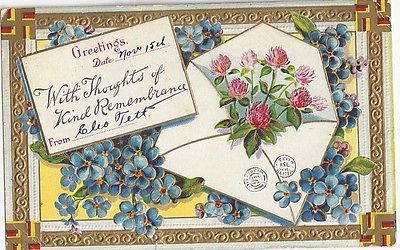 Greetings
Date Nov 15th
With Thoughts of
Kind Remembrance
From Cleo Tett.